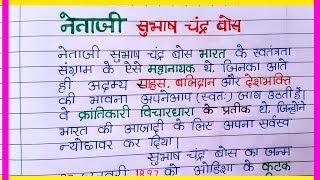 नेताजी सुभाष चंद्र बोस
नेताजी सुभाष चंद्र बोस भारत के स्वतंत्रता
संग्राम के ऐसे महानायक थे, जिनका आते
ही अदम्य साहस, बलिदान और देशभक्ति
की भावना अपनेआप (स्वतः) जाग उठती है।
वे क्रांतिकारी विचारधारा के प्रतीक थे, जिन्होंने
भारत की आजादी के लिए अपना सर्वस्व
न्योछावर कर दिया।
सुभाष चंद्र बोस का जन्म
1897 को ओडिशा के कटक